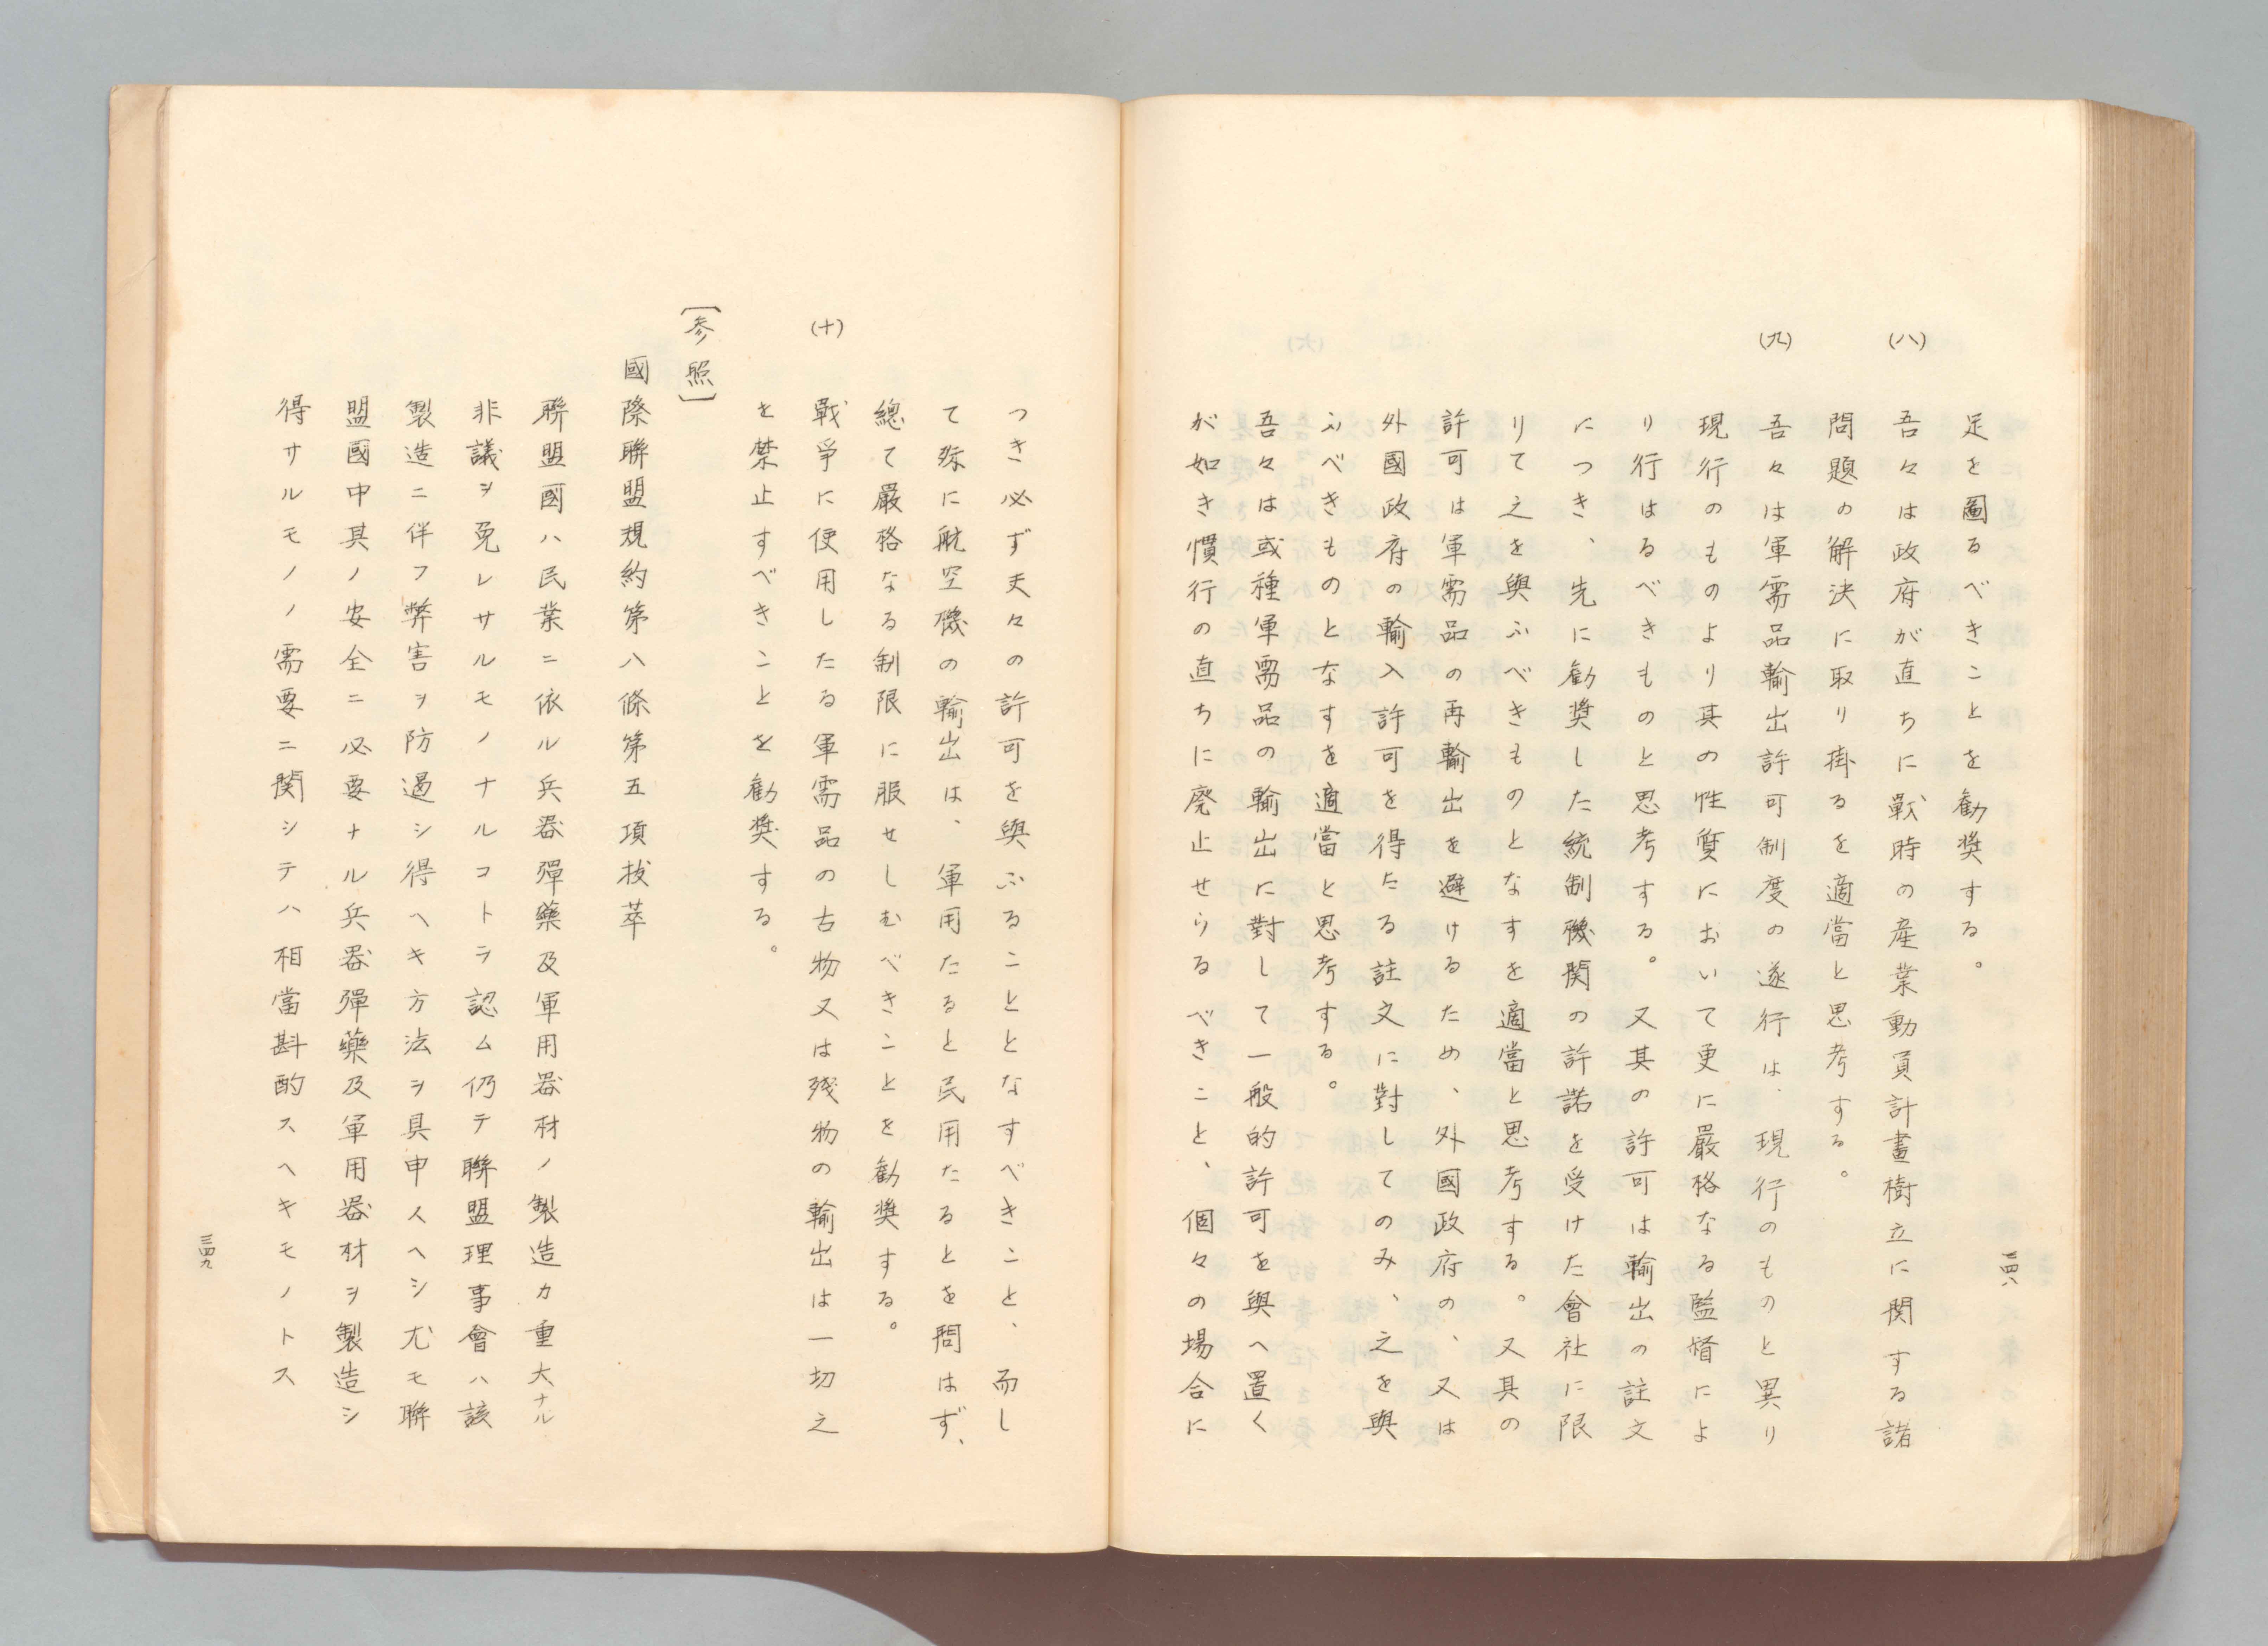 足を圖るべきことを勧奨する。
(八)
吾々は政府が直ちに戰時の産業動員計畫樹立に関する諸
問題の解決に取り掛るを適當と思考する。
(九)
吾々は軍需品輸出許可制度の遂行は、現行のものと異り
現行のものより其の性質において更に嚴格なる監督によ
り行はるべきものと思考する。又其の許可は輸出の註文
につき、先に勧奨した統制機関の許諾を受けた會社に限
りて之を與ふべきものとなすを適當と思考する。又其の
許可は軍需品の再輸出を避けるため、外國政府の、又は
外國政府の輸入許可を得たる註文に對してのみ、之を與
ふべきものとなすを適當と思考する。
吾々は或種軍需品の輸出に對して一般的許可を與へ置く
が如き慣行の直ちに廃止せらるべきこと、個々の場合に
三四八
つき必ず夫々の許可を與ふることとなすべきこと、而し
て殊に航空機の輸出は、軍用たると民用たるとを問はず、
總て嚴格なる制限に服せしむべきことを勧奨する。
(十)
戰爭に使用したる軍需品の古物又は残物の輸出は一切之
を禁止すべきことを勧奨する。
〔参照〕
國際聯盟規約第八條第五項抜萃
聯盟國ハ民業ニ依ル兵器彈藥及軍用器材ノ製造カ重大ナル
非議ヲ免レサルモノナルコトヲ認ム仍テ聯盟理事會ハ該
製造ニ伴フ弊害ヲ防遏シ得ヘキ方法ヲ具申スヘシ尤モ聯
盟國中其ノ安全ニ必要ナル兵器彈藥及軍用器材ヲ製造シ
得サルモノノ需要ニ関シテハ相當斟酌スヘキモノトス
三四九